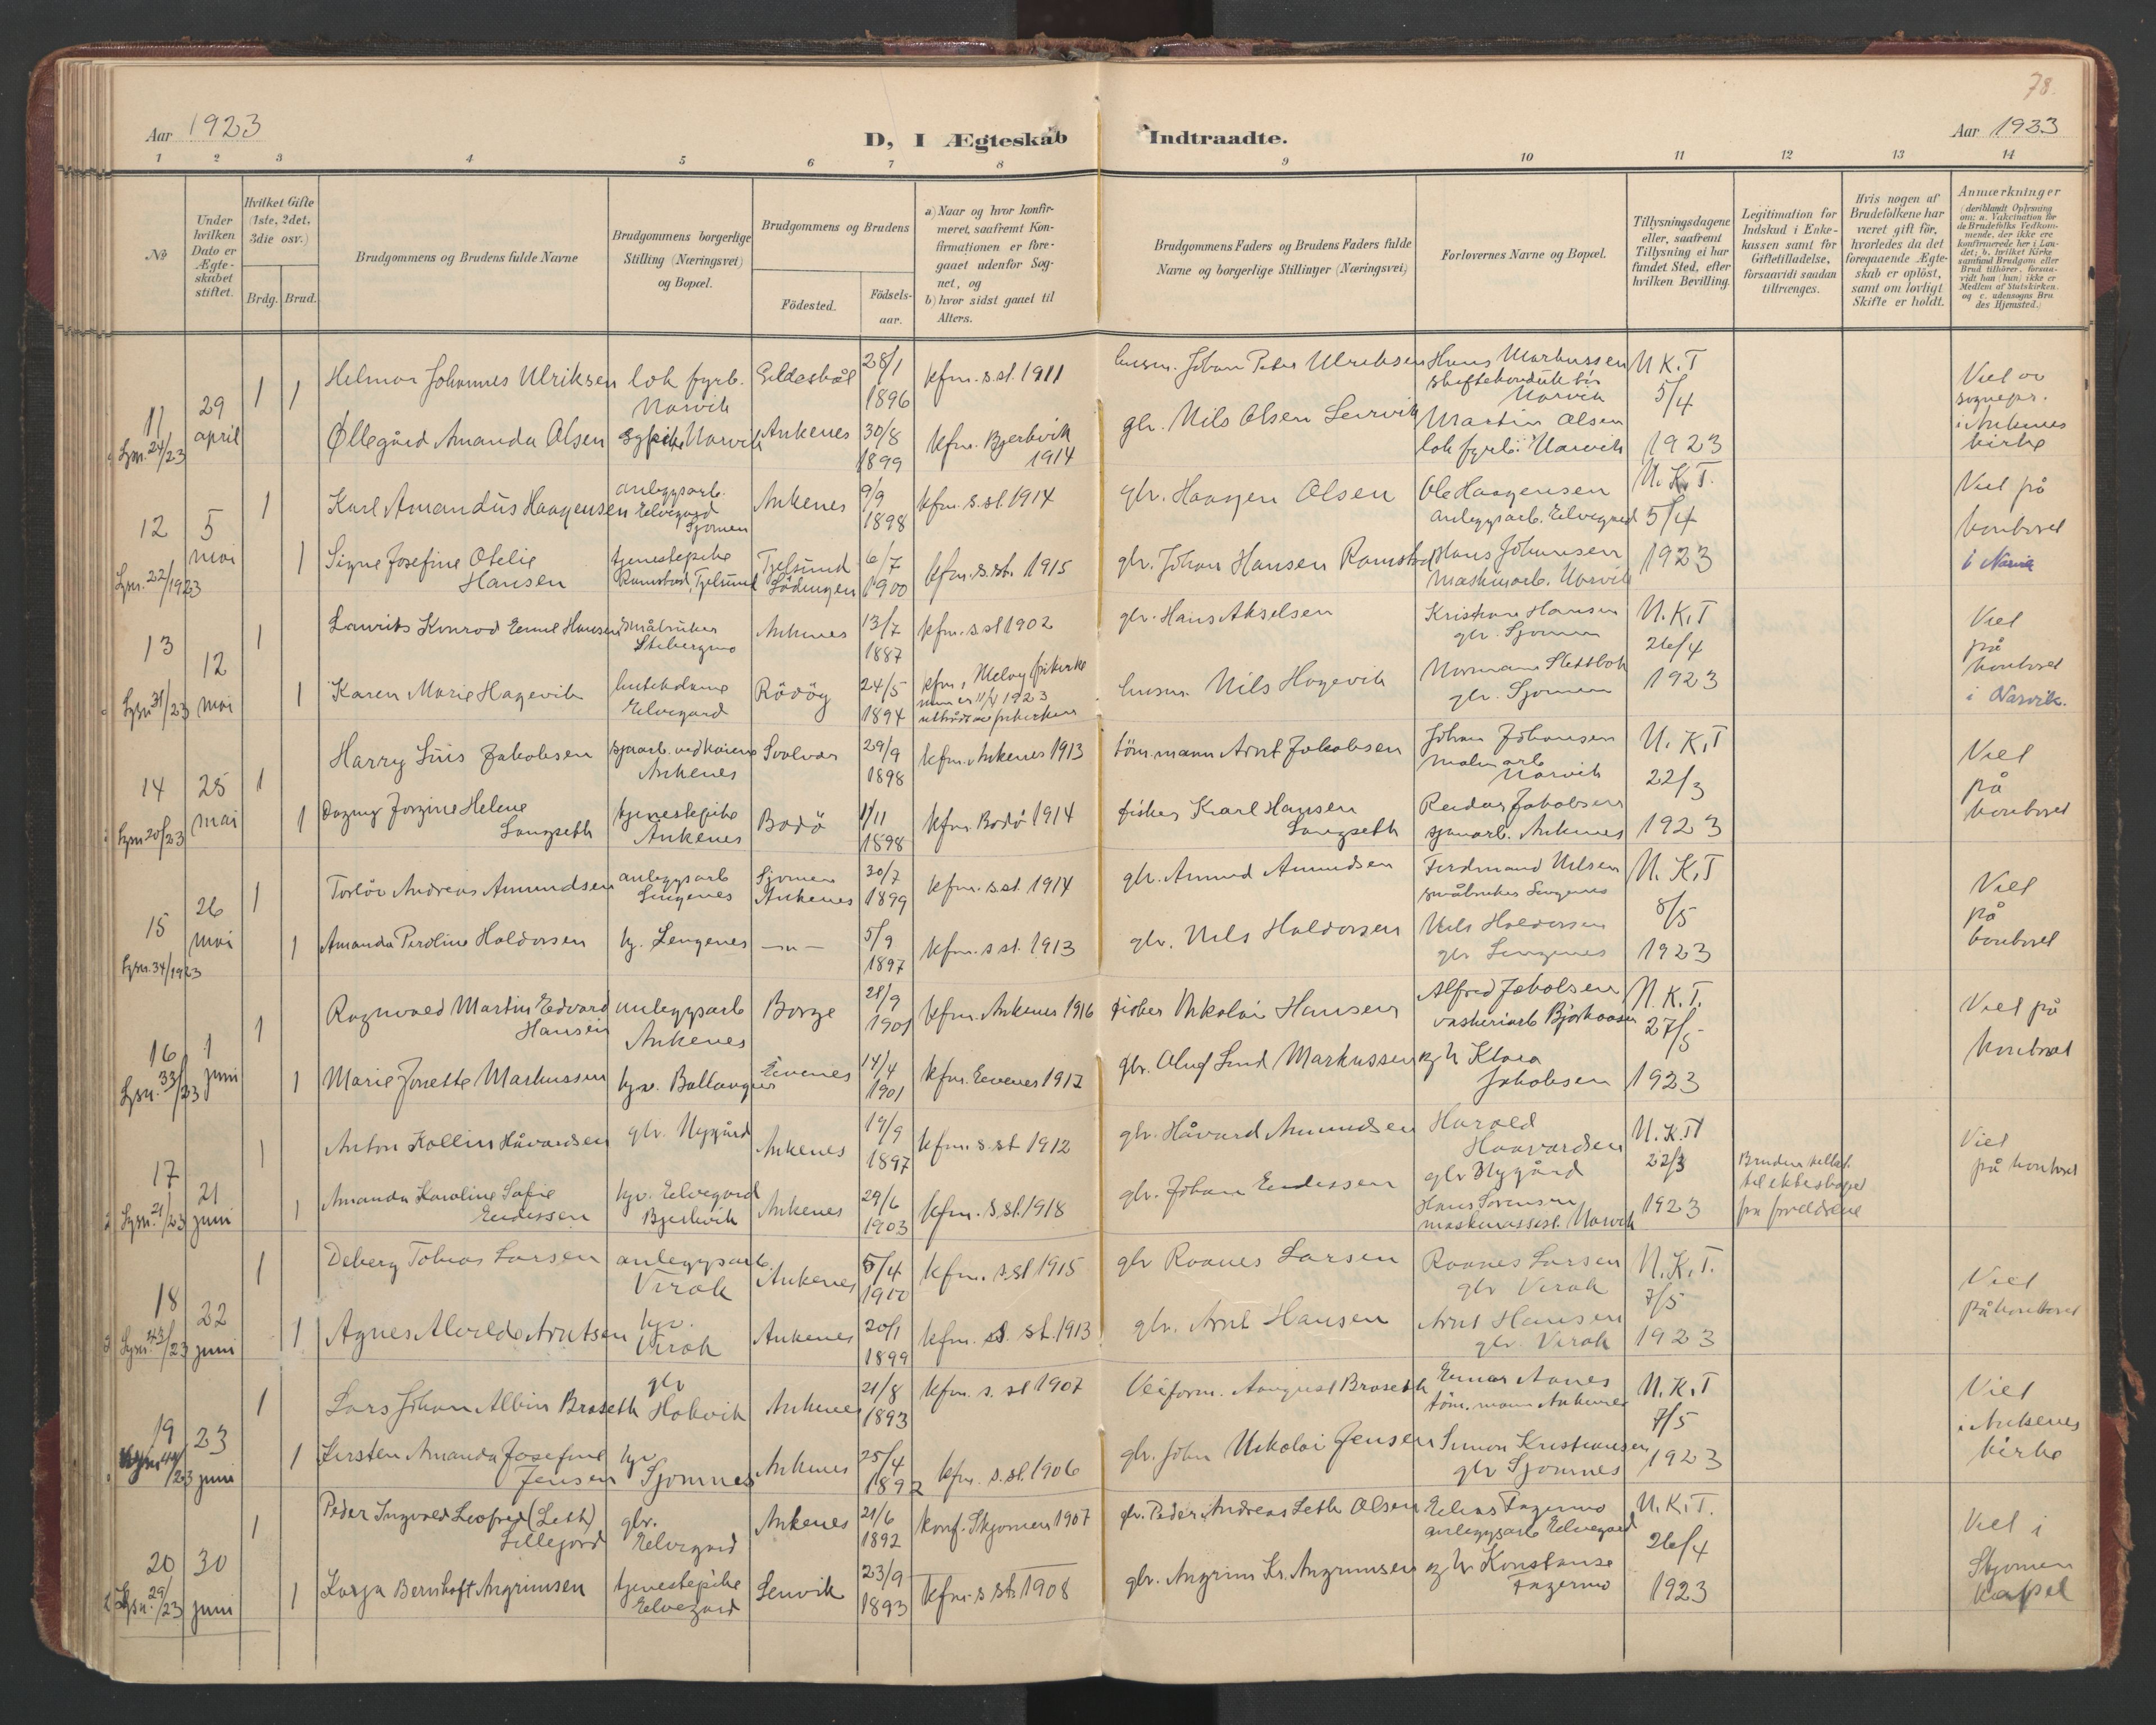 78.
Aar 1923
D, I Ægteskab Indtraadte.
Aar 1923
1 2 3 4 5 6 7 8 9 10 11 12 13 14
No
Under hvilken Dato er Ægteskabet stiftet.
Hvilket Gifte (1ste, 2det, 3die osv.)
Brdg. Brud.
Brudgommens og Brudens fulde Navne
Brudgommens borgerlige Stilling (Næringsvei) og Bopæl.
Brudgommens og Brudens
Födested.
Födselsaar.
a) Naar og hvor konfirmeret, saafremt Konfirmationen er foregaaet udenfor Sognet, og
b) hvor sidst gaaet til Alters.
Brudgommens Faders og Brudens Faders fulde Navne og borgerlige Stillinger (Næringsvei)
Forlovernes Navne og Bopæl.
Tillysningsdagene eller, saafremt Tillysning ei har fundet Sted, efter hvilken Bevilling.
Legitimation for Indskud i Enkekassen samt for Giftetilladelse, forsaavidt saadan tiltrænges.
Hvis nogen af Brudefolkene har været gift för, hvorledes da det foregaaende Ægteskab er oplöst, samt om lovligt Skifte er holdt.
Anmærkninger
(deriblandt Oplysning om: a. Vakcination for de Brudefolks Vedkommende, der ikke ere konfirmerede her i Landet; b. hvilket Kirkesamfund Brudgom eller Brud tilhörer, forsaavidt han (hun) ikke er Medlem af Statskirken. og c. udensogns Brudes Hjemsted.)
11 Lysn. 24/23 29 april 1 1
Helmar Johannes Ulriksen lok fyrb. Narvik Gildeskål 28/1 1896 kfm. s.st. 1911
husm. Johan Peter Ulriksen Hans Markussen Narvik N.K.T 5/4 1923
Øllegård Amanda Olsen Narvik Ankenes 30/8 1899 kfm. Bjerkvik 1914
gbr. Nils Olsen Leirvik Martin Olsen lok fyrb. Narvik
Viet av sognepr. i Ankenes kirke
12 Lysn. 22/1923 5 mai 1 1
Karl Amandus Haagensen anleggsarb. Elvegard Sjomen Ankenes 9/9 1898 kfm. s.st. 1914
gbr. Haagen Olsen Ole Haagensen anleggsarb. Elvegard N.K.T. 5/4 1923
Signe Josefine Otelie Hansen tjenestepike Ramstad, Tjelsund Tjelsund Lödingen 6/7 1900 kfm. s.st. 1915
gbr. Johan Hansen Ramstad Hans Johansen maskinarb. Narvik
Viet på kontoret i Narvik
13 Lysn. 31/23 12 mai 1 1
Laurits Konrad Emil Hansen småbruker Stibergmo Ankenes 13/7 1887 kfm. s.st 1902
gbr. Hans Akselsen Kristian Hansen gbr. Sjomen N.K.T 26/4 1923
Karen Marie Hagevik Elvegard Rödöy 24/5 1894 kfm. i Meløy frikirke 11/4 1923
husm. Nils Hagevik Normann Slettbak gbr. Sjomen
Viet på kontoret i Narvik.
14 Lysn 20/23 25 mai 1 1
Harry Luis Jakobsen Ankenes Svolvær 29/9 1898 kfm. Ankenes 1913
töm.mann Arnt Jakobsen Johan Johansen malmarb Narvik N.K.T 22/3 1923
Dagny Jorgine Helene Langseth tjenestepike Ankenes Bodö 11/11 1898 kfm. Bodö 1914
fisker Karl Hansen Langseth Reidar Jakobsen Ankenes
Viet på kontoret
15 Lysn. 34/1923 26 mai 1 1
Torlöv Andreas Amundsen anleggsarb Lengenes Sjomen Ankenes 30/7 1899 kfm. s.st. 1914
gbr. Amund Amundsen Ferdinand Nilsen småbruker Lengenes N.K.T 8/5 1923
Amanda Peroline Haldorsen hj. Lengenes —"— 5/9 1897 kfm. s st. 1913
gbr. Nils Haldorsen Nils Haldorsen gbr Lengenes
Viet på kontoret
16 Lysn. 33/23 1 juni 1 1
Ragnvald Martin Edvard Hansen anleggsarb Ankenes Borge 21/9 1901 kfm. Ankenes 1916
fisker Nikolai Hansen Alfred Jakobsen vaskeriarb Björkaasen N.K.T. 27/5 1923
Marie Jonette Markussen hjv. Ballangen Evenes 14/4 1901 kfm. Evenes 1917
gbr. Oluf Lind Markussen og h Klara Jakobsen
Viet på kontoret
17 Lysn. 21/23 21 juni 1 1
Anton Kollin Håvardsen gbr. Nygård Ankenes 19/9 1897 kfm. s.st 1912
gbr. Håvard Amundsen Harald Haavardsen gbr Nygård N.K.T 22/3 1923
Amanda Karoline Sofie Endessen hjv. Elvegard Bjerkvik Ankenes 29/6 1903 kfm. s.st. 1918
gbr. Johan Endessen Hans Sörensen maskinassist. Narvik
Bruden tillat. til ekteskapet fra foreldrene
Viet på kontoret
18 Lysn. 43/23 22 juni 1 1
Deberg Tobias Larsen anleggsarb. Virak Ankenes 5/4 1900 kfm. s.st 1915
gbr Raanes Larsen Raanes Larsen gbr Virak N.K.T. 7/5 1923
Agnes Alvilde Arntsen hjv. Virak Ankenes 20/1 1899 kfm. s. st. 1913
gbr. Arnt Hansen Arnt Hansen gbr. Virak
Viet på kontoret
19 Lysn 44/23 23 juni 1 1
Lars Johan Albin Braseth gbr Hakvik Ankenes 21/8 1893 kfm. s. st 1907
Veiform. Aaugust Braseth Einar Aanes töm.mann Ankenes N.K.T 7/5 1923
Kirsten Amanda Josefine Jensen hjv Sjomnes Ankenes 25/4 1892 kfm. s.st. 1906
gbr. John Nikolai Jensen Simon Kristiansen gbr Sjomnes
Viet i Ankenes kirke
20 Lysn. 29/23 30 juni 1 1
Peder Ingvald Leofred (Leth) Lillejord gbr. Elvegard Ankenes 21/6 1892 konf. Skjomen 1907
gbr. Peder Andreas Leth Olsen Elias Fagermo anleggsarb Elvegard N.K.T. 26/4 1923
Kasja Bernhoft Angrimsen tjenestepike Elvegard Lenvik 23/9 1893 kfm. s st. 1908
gbr. Angrim Kr. Angrimsen og h. Konstanse Fagermo
Viet i Skjomen kapel